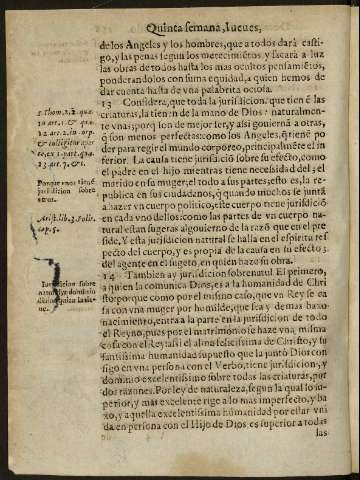 Quinta semana, Iueves,
de los Angeles y los hombres, que a todos dará casti-
go, y las penas segun los merecimiẽtos, y sacará a luz
las obras de todos hasta los mas ocultos pensamiẽtos,
ponderandolos con suma equidad, a quien hemos de
dar cuenta hasta de vna palabrita ociosa.
13 Considera, que toda la jurisdicion, que tienẽ las
criaturas, la tienen de la mano de Dios: naturalmen-
te vnas, porq̃ son de mejor ser, y assi gouiernã a otras,
q̃ son menos perfectas: como los Angeles, q̃ tienẽ po
der para regir el mundo corporeo, principalmẽte el in
ferior. La causa tiene jurisdiciõ sobre su efecto, como
el padre en el hijo mientras tiene necessidad del; el
marido en su muger; el todo a sus partes; esto es, la re-
publica en sus ciudadanos, q̃ quando muchos se juntã
a hazer vn cuerpo politico, este cuerpo tiene jurisdiciõ
en cada vno dellos: como las partes de vn cuerpo na-
tural estan sugetas al gouierno de la razõ que en el pre
side. Y esta jurisdicion natural se halla en el espiritu res
pecto del cuerpo, y es propia de la causa en su efecto;
del agente en el sugeto, en quien haze su obra.
14 Tambien ay jurisdicion sobrenatural. El primero,
a quien la comunica Dios, es a la humanidad de Chri
sto: porque como por el mismo caso, que vn Rey se ca
sa con vna muger por humilde, que sea y de mas baxo
nacimiento, entra a la parte en la jurisdicion de todo
el Reyno, pues por el matrimonio se haze vna misma
cosa con el Rey: assi el alma felicissima de Christo, y su
santissima humanidad supuesto que la juntò Dios con
sigo en vna persona con el Verbo, tiene jurisdicion, y
dominio excelentissimo sobre todas las criaturas, por
dos razones. Por ley de naturaleza, segun la qual lo su-
perior, y mas excelente rige a lo mas imperfecto, y ba
xo, y aquella excelentissima humanidad por estar vni
da en persona con el Hijo de Dios es superior a todas
las
S. Thom. 2. 2. quæ.
10. art.
12. art. 2. in corp.
& colligitur aper-
te, ex 1. part. quæ.
13. art. 7. & 1.
Porque vnos tienẽ
jurisdicion sobre
otros.
Arist. lib. 3. Polit.
cap. 5.
Iurisdicion sobre
natural, y dominio